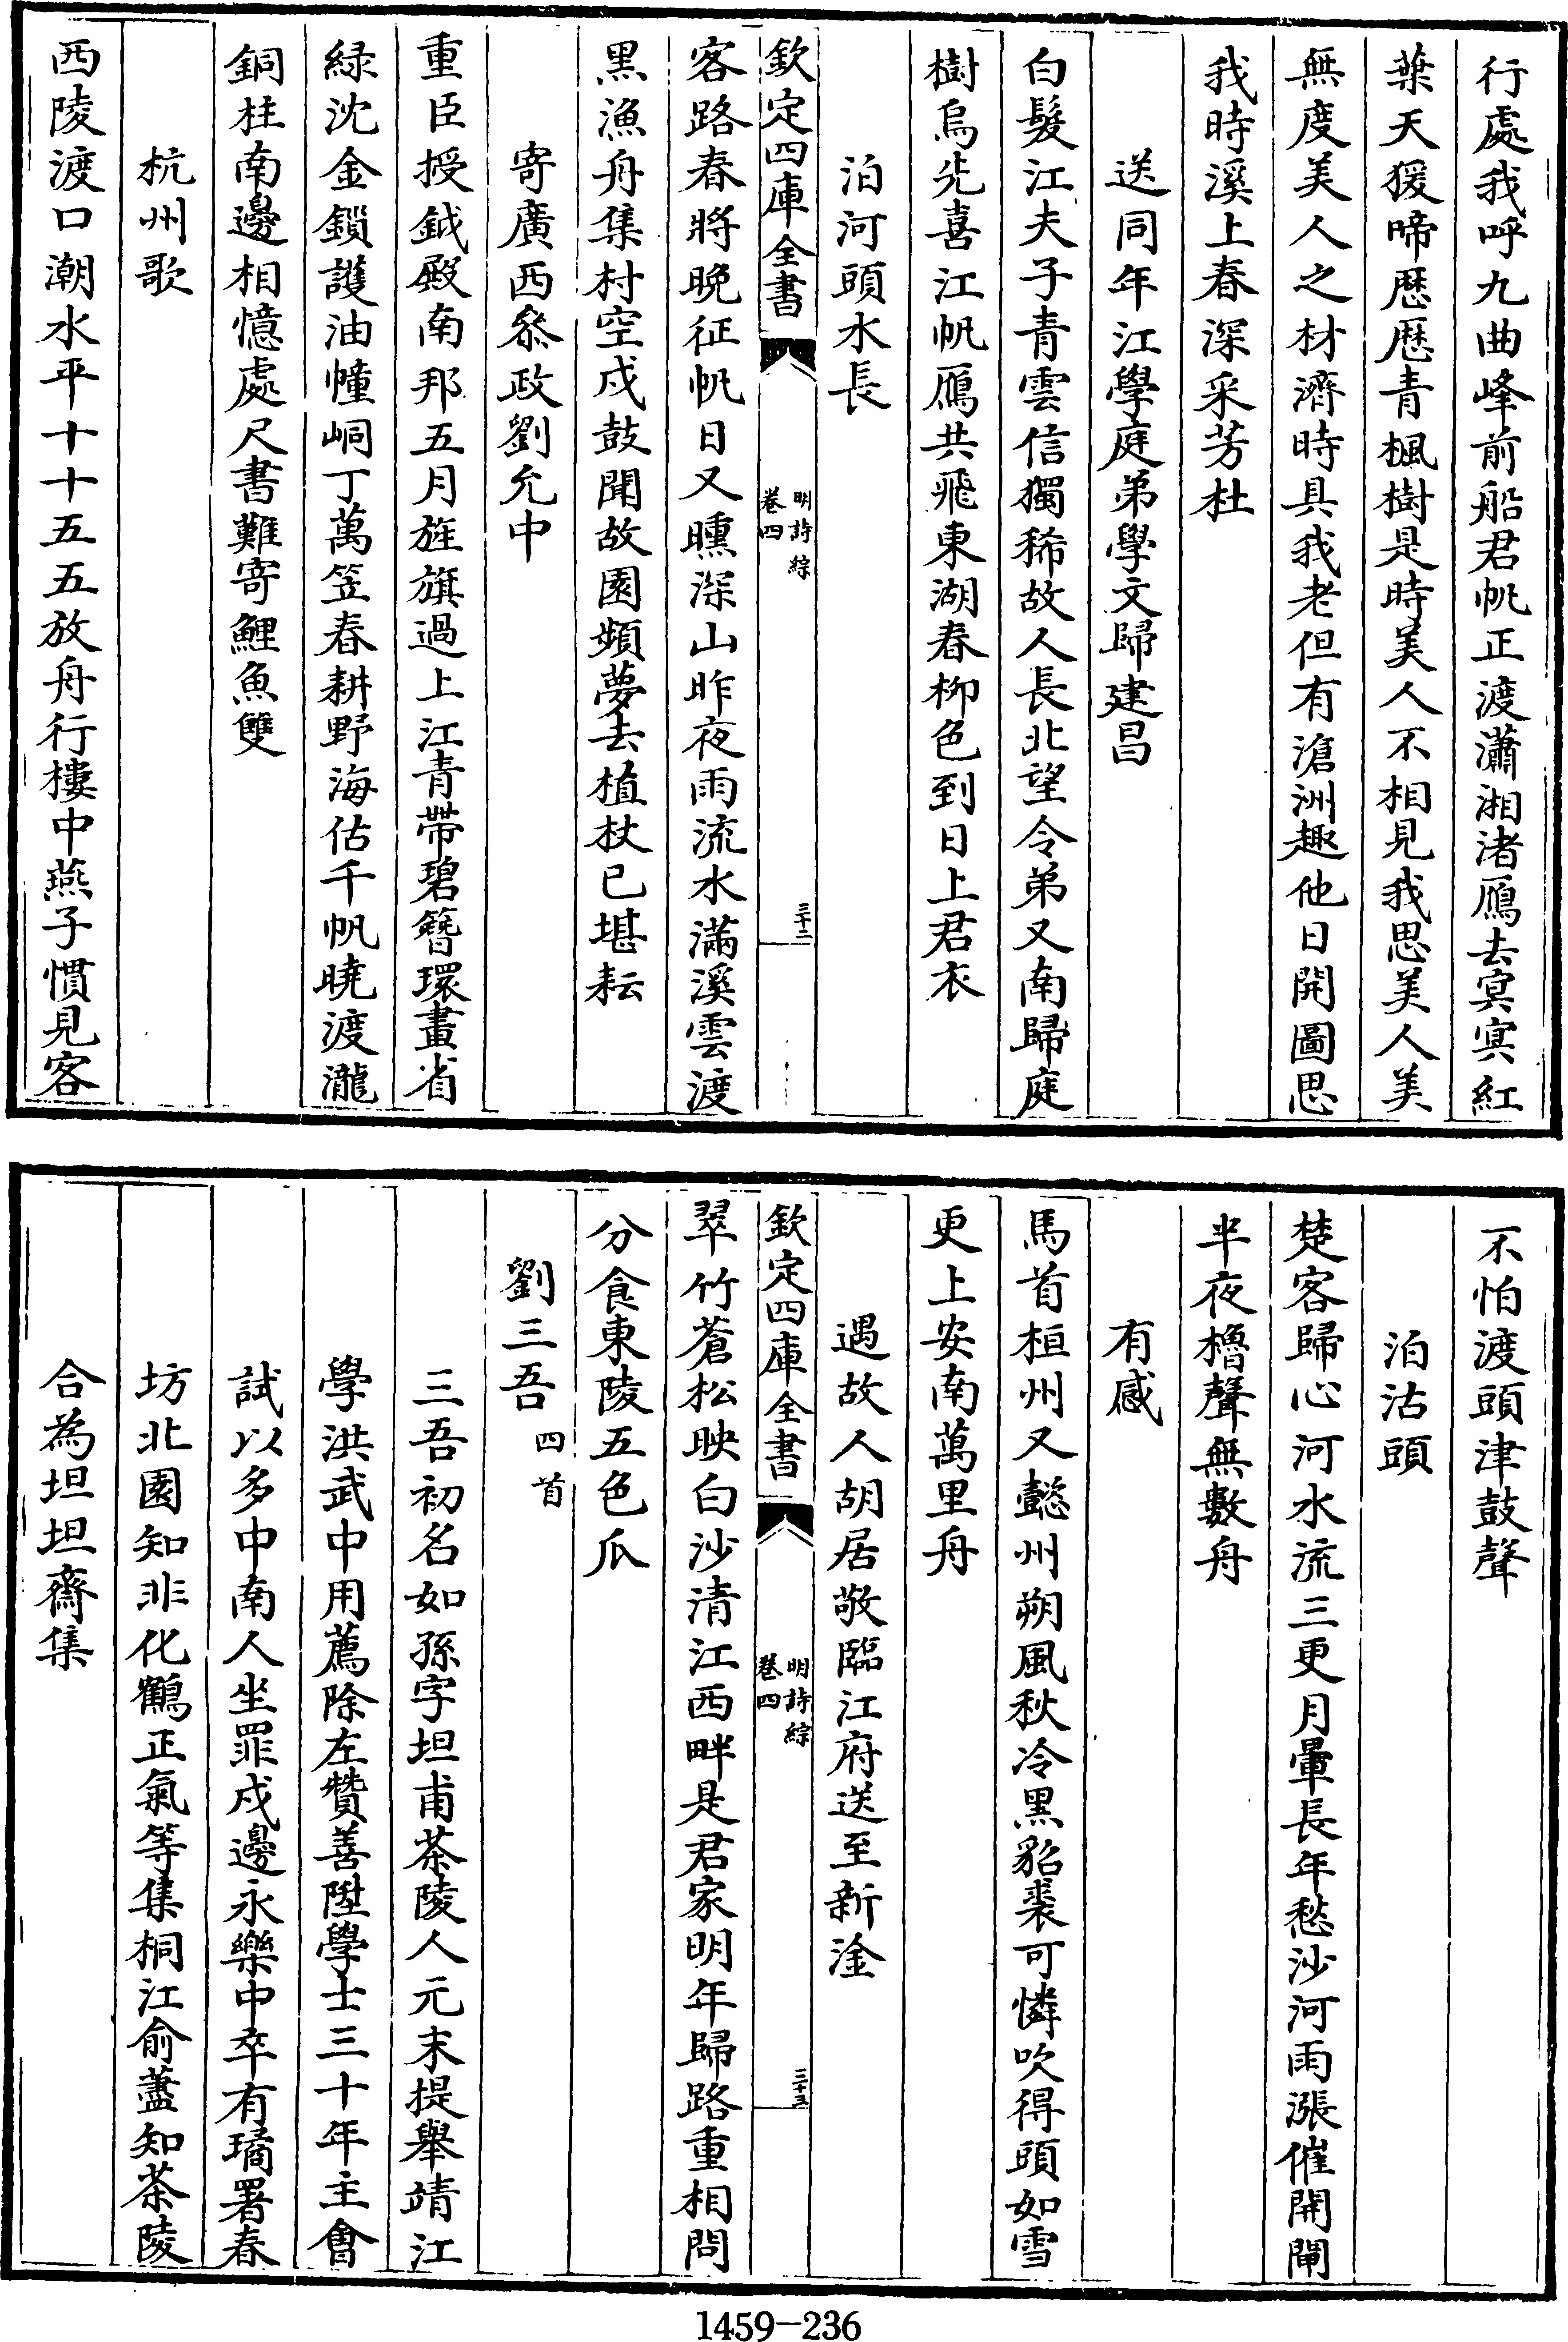 行處我呼九曲峰前船君帆正渡瀟湘渚鴈去冥冥紅
葉天猨啼厯厯青楓樹是時美人不相見我思美人美
無度美人之材濟時具我老但有滄洲趣他日開圖思
我時溪上春深采芳杜
送同年江學庭弟學文歸建昌
白髮江夫子青雲信獨稀故人長北望令弟又南歸庭
樹烏先喜江帆鴈共飛東湖春栁色到日上君衣
泊河頭水長
欽定四庫全書
明詩綜
卷四
三十二
客路春將晚征帆日又曛深山昨夜雨流水滿溪雲渡
黒漁舟集村空戍鼓聞故園頻夢去植杖已堪耘
寄廣西叅政劉允中
重臣授鉞殿南邦五月旌旗過上江青帶碧簪環畫省
緑沈金鎖護油幢峒丁萬笠春耕野海估千帆曉渡瀧
銅柱南邊相憶處尺書難寄鯉魚雙
杭州歌
西陵渡口潮水平十十五五放舟行樓中燕子慣見客
不怕渡頭津鼓聲
泊沽頭
楚客歸心河水流三更月暈長年愁沙河雨漲催開閘
半夜櫓聲無數舟
有感
馬首桓州又懿州朔風秋冷黒貂裘可憐吹得頭如雪
更上安南萬里舟
遇故人胡居敬臨江府送至新淦
欽定四庫全書
明詩綜
卷四
三十三
翠竹蒼松映白沙清江西畔是君家明年歸路重相問
分食東陵五色瓜
劉三吾四首
三吾初名如孫字坦甫茶陵人元末提舉靖江
學洪武中用薦除左贊善陞學士三十年主㑹
試以多中南人坐罪戍邊永樂中卒有璚署春
坊北園知非化鶴正氣等集桐江俞藎知茶陵
合為坦坦齋集
1459-236